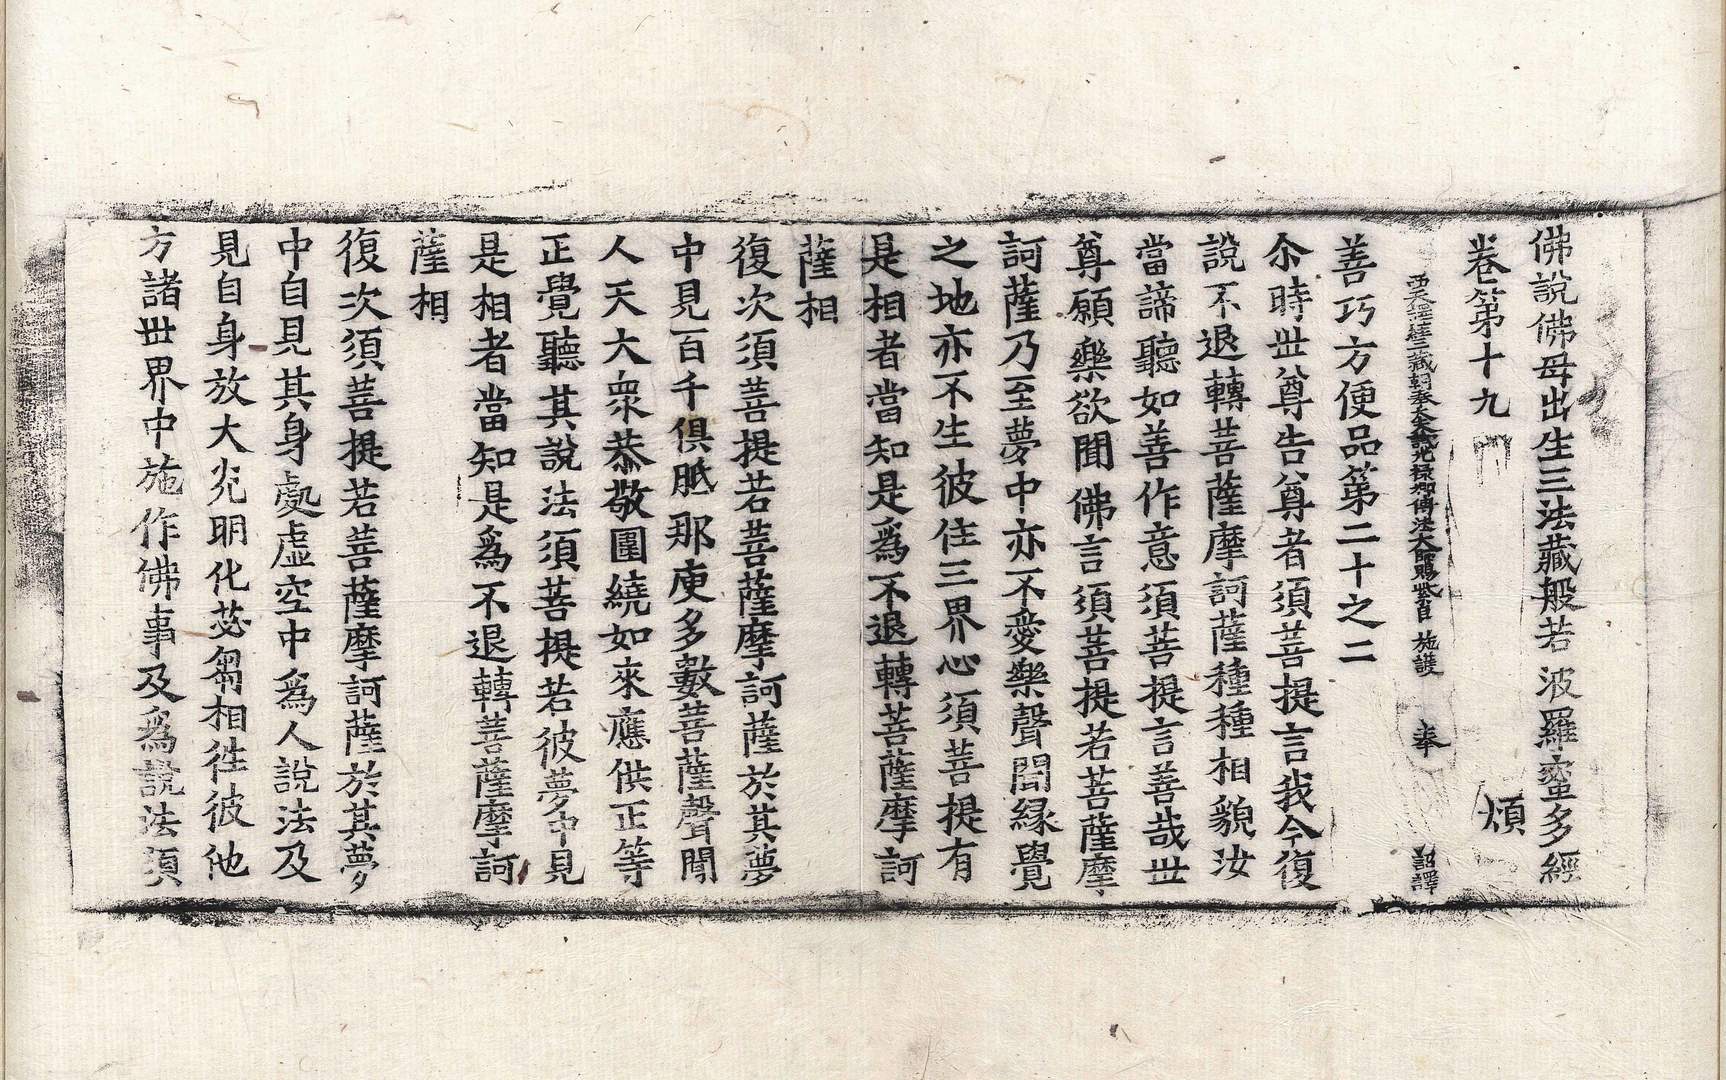 佛說佛母出生三法藏般若波羅蜜多經
卷第十九 煩
西天譯經三藏朝奉大夫試光祿卿傳法大師賜紫臣施護 奉 詔譯
善巧方便品第二十之二
尒時世尊告尊者須菩提言我今復
說不退轉菩薩摩訶薩種種相貌汝
當諦聽如善作意須菩提言善哉世
尊願樂欲聞佛言須菩提若菩薩摩
訶薩乃至夢中亦不愛樂聲聞緣覺
之地亦不生彼住三界心須菩提有
是相者當知是爲不退轉菩薩摩訶
薩相
復次須菩提若菩薩摩訶薩於其夢
中見百千俱胝那庾多數菩薩聲聞
人天大衆恭敬圍繞如來應供正等
正覺聽其說法須菩提若彼夢中見
是相者當知是爲不退轉菩薩摩訶
薩相
復次須菩提若菩薩摩訶薩於其夢
中自見其身處虛空中爲人說法及
見自身放大光明化苾芻相徃彼他
方諸世界中施作佛事及爲說法須